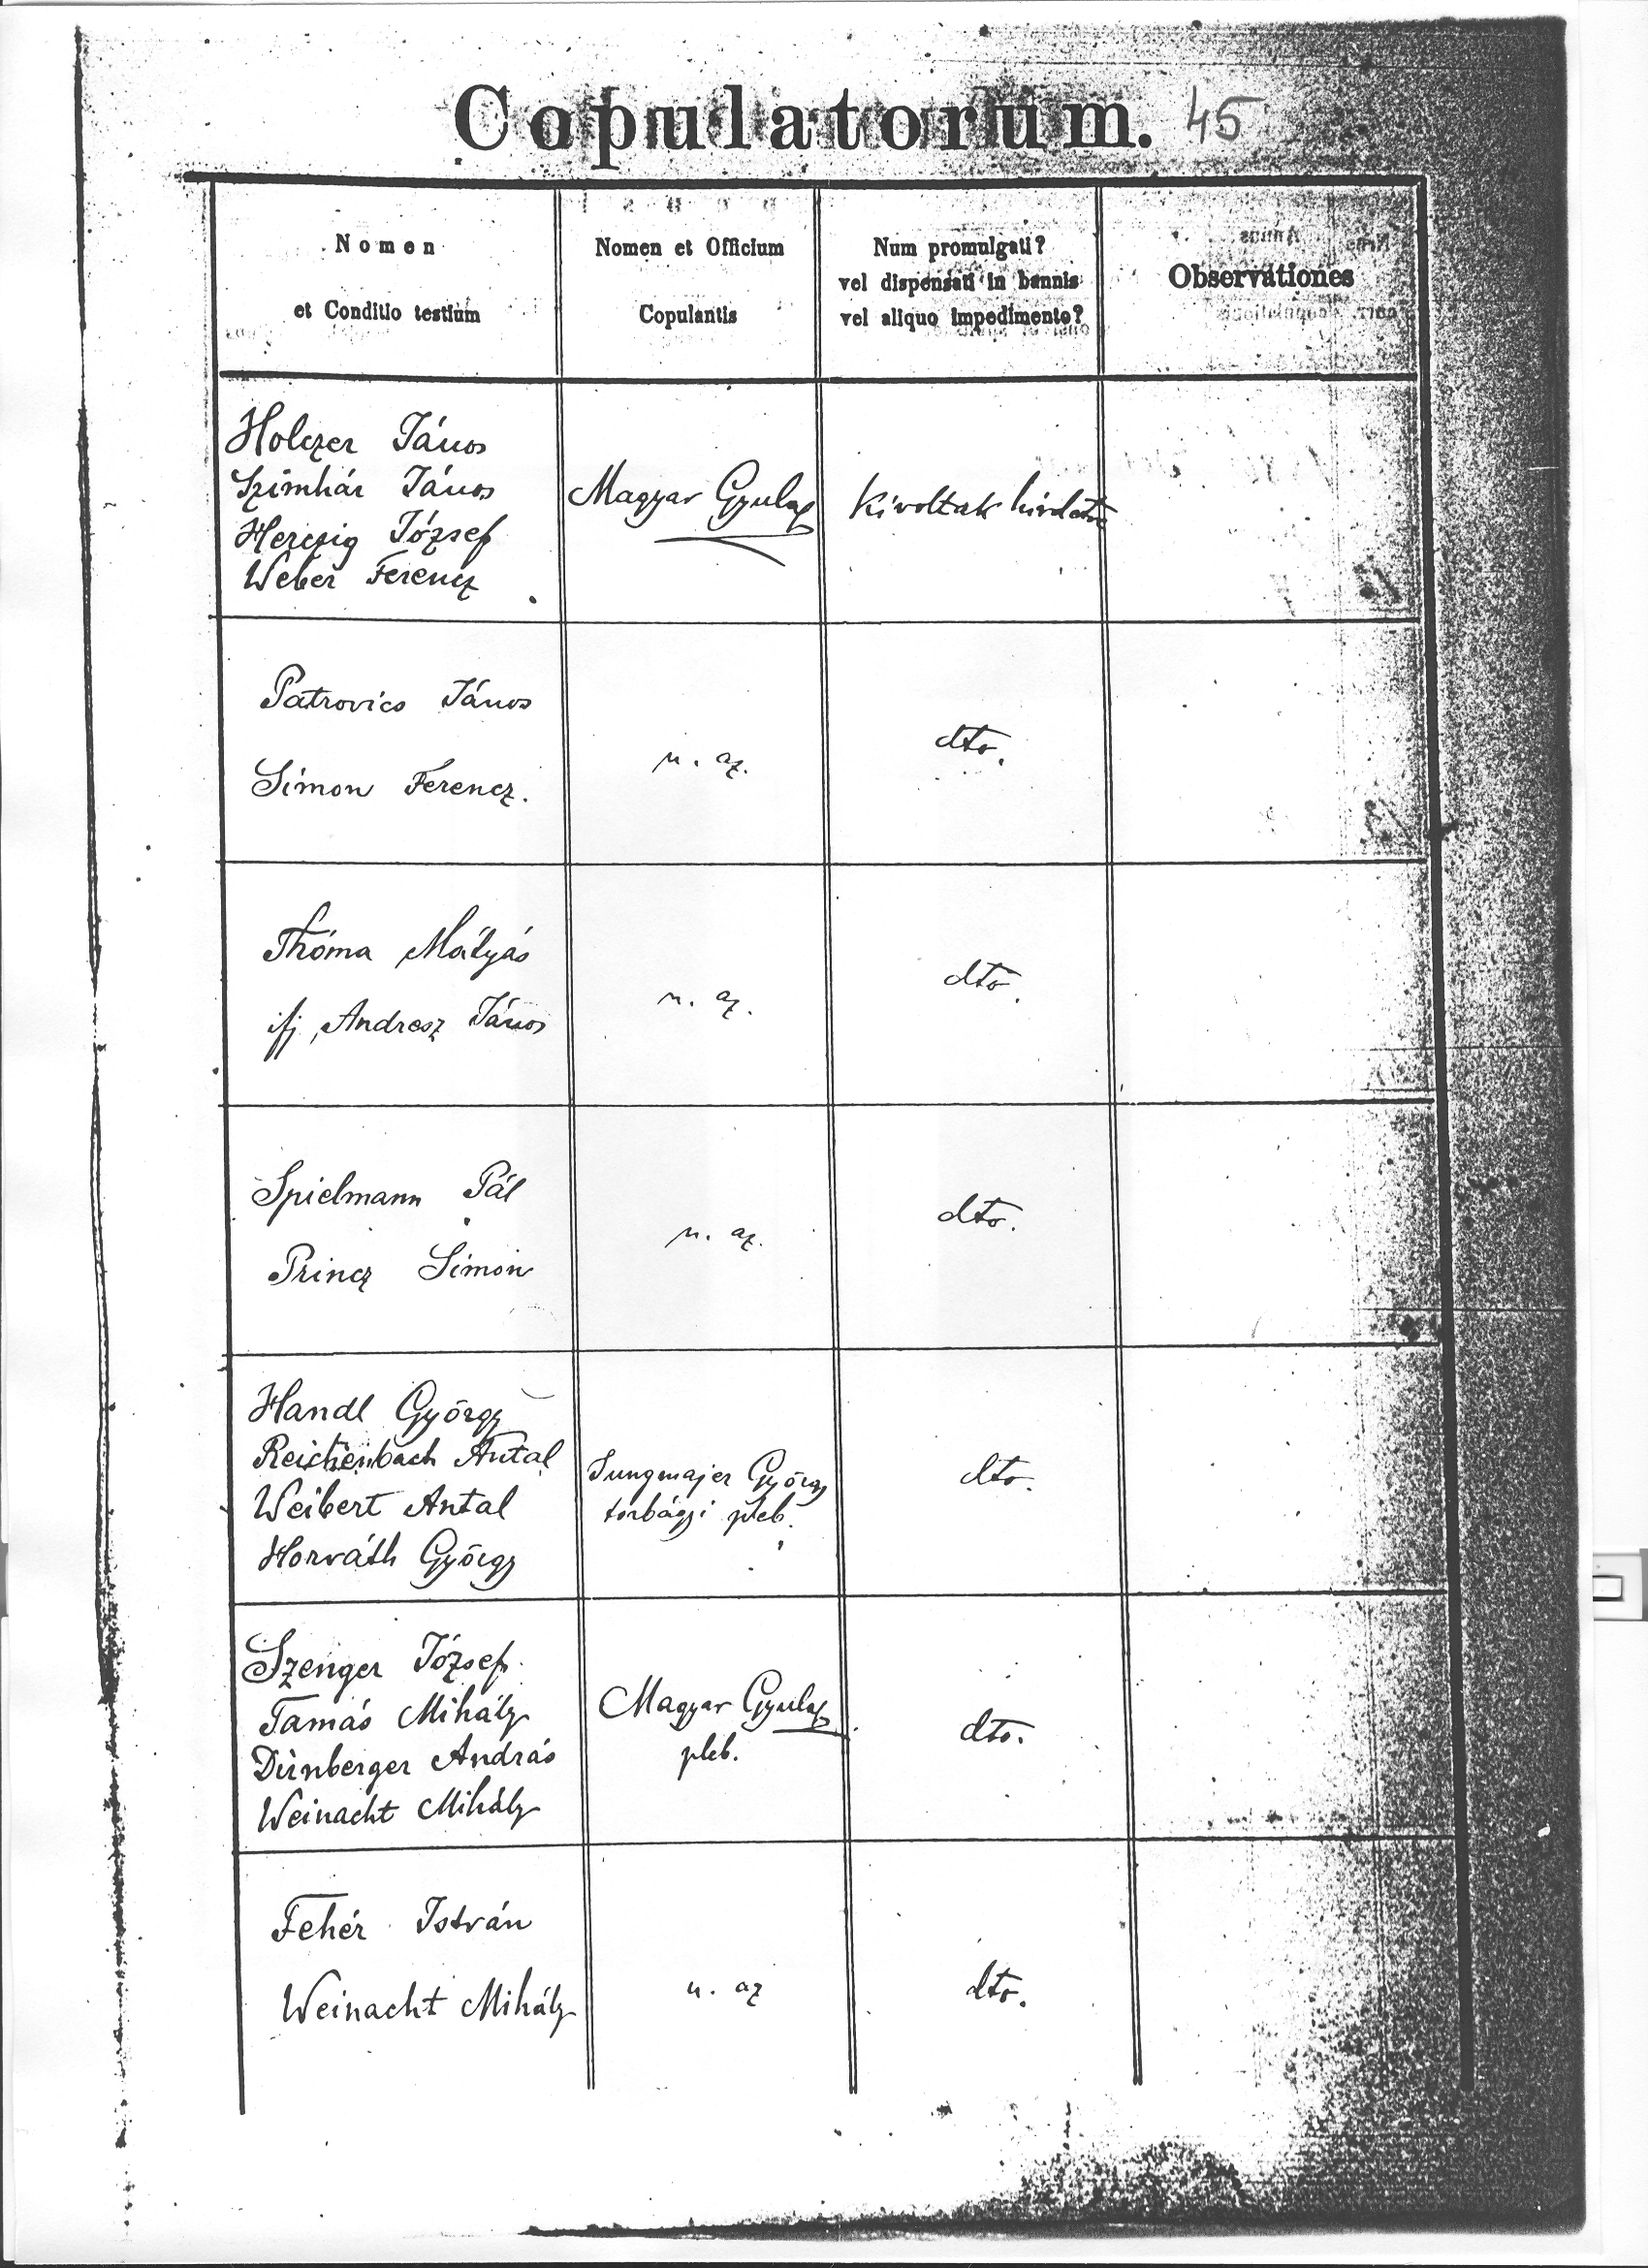 Copulatorum. 45
Nomen
et Conditio testium
Nomen et Officium
Copulantis
Num promulgati?
vel dispensati in bannis
vel aliquo impedimento?
Observationes
Holczer János
Szimhár János
Herczig József
Weber Ferencz
Magyar Gyula
Kivoltak hirdetve
Patrovics János
Simon Ferencz.
u. az.
dto.
Thóma Mátyás
ifj. Andresz János
u. az.
dto.
Spielmann Pál
Princz Simon
u. az.
dto.
Handl György
Reichenbach Antal
Weibert Antal
Horváth György
Jungmajer György
torbágyi pleb.
dto.
Szenger József
Tamás Mihály
Dürnberger András
Weinacht Mihály
Magyar Gyula
pleb.
dto.
Fehér István
Weinacht Mihály
u. az
dto.